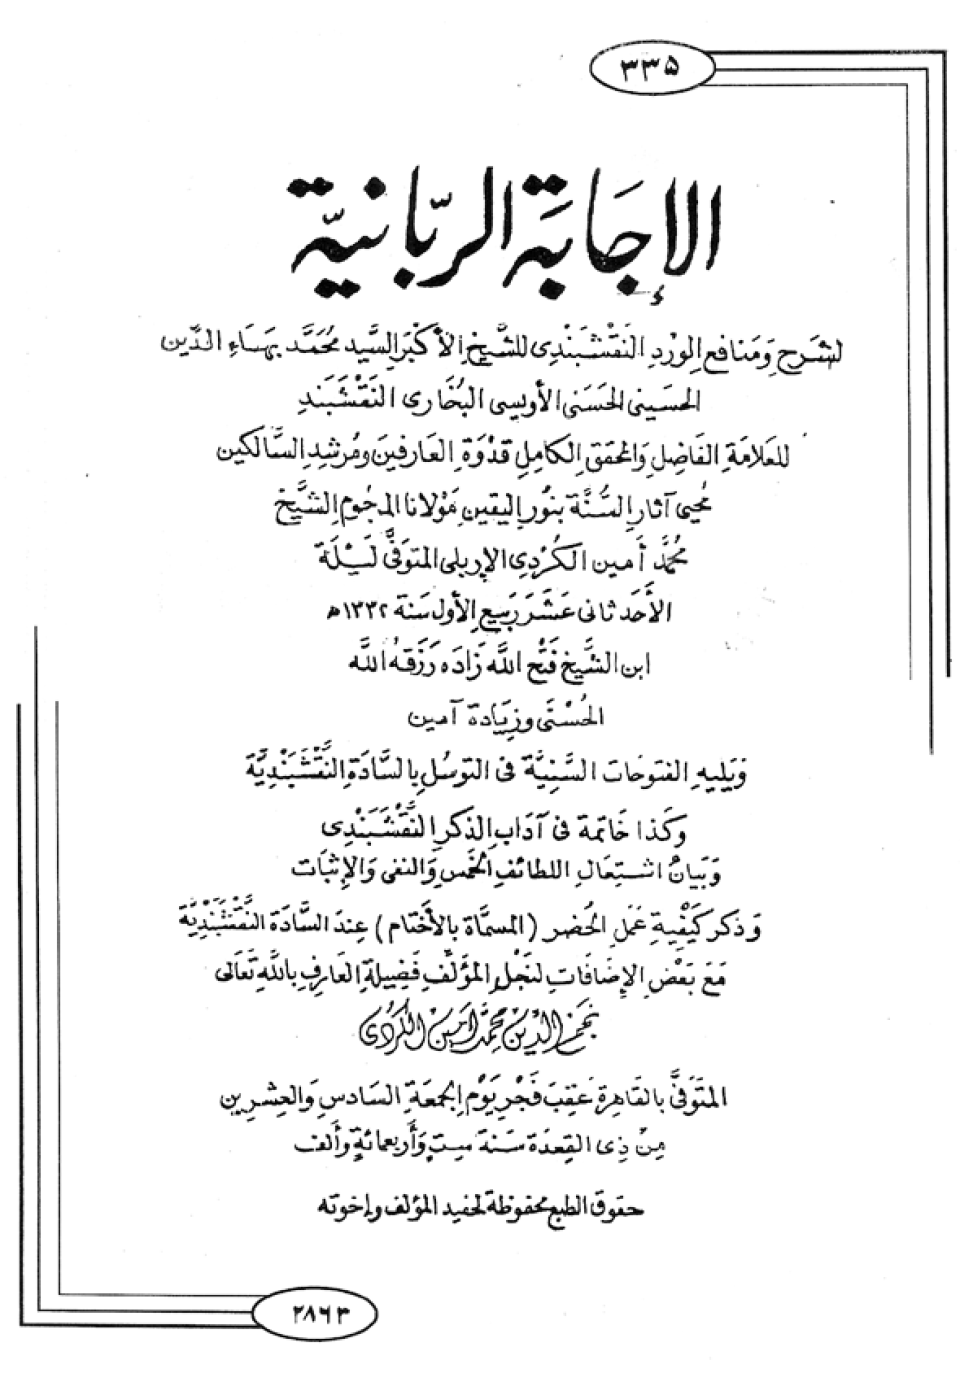 ٣٣٥
الإجَابَة الربّانيّة
لشَرح وَمَنافع الورد النَقْشبَنْدى للشَّيخ الأكبَر السَّيد مُحَمَّد بَهَاءِ الدِّين
الحسَينى الحسَنى الأويسى البُخَارى النَقْشبَندِ
للعَلامَةِ الفَاضِلِ وَالمحَقق الكامِلِ قدْوَة العَارفِينَ ومُرشدِ السَّالكين
مُحيى آثار السُّنَّة بنوُر اليَقين مَوْلانا المرحُوم الشَّيخ
مُحمَّد أمين الكُرْدى الإربلى المتوَفَّى لَيْلَة
الأَحَد ثانى عَشَر رَبيع الأول سَنة ١٣٣٢ھ
ابن الشَّيخ فَتْح اللَّه زَادَه رَزَقَهُ اللَّه
الحُسْنَى وزيَادة آمين
وَيَليهِ الفتوحَات السَّنِيَّة فى التوسُل بالسَّادَةِ النَّقْشَبَنْدِيَّة
وَكَذا خَاتمة فى آدَابِ الذكر النَّقْشَبَنْدِى
وَبَيانُ اشتِعَالِ اللطائفِ الخمَسِ وَالنفى وَالإثبَات
وَذكر كَيفْيةِ عَمَلِ الحُضر (المسمَّاة بالأَختَام) عِندَ السَّادَة النَّقْشَبَنْدِيَّة
مَعَ بَعْضِ الإضَافَاتِ لنجْلِ المؤَلِّفِ فَضِيلةِ العَارفِ باللَّهِ تَعَالى
نجمُ الدِّين محمَّد امين الكُردى
المتَوَفَّى بالقَاهِرَة عَقِبَ فَجْر يَوْم الجمعَةِ السَّادس وَالعِشرين
مِنْ ذِى القِعدَة سَنَة سِتٍ وَأربعمائةٍ وَألف
حقوق الطبع محفوظة لحفيد المؤلف وإخوته
٢٨٦٣